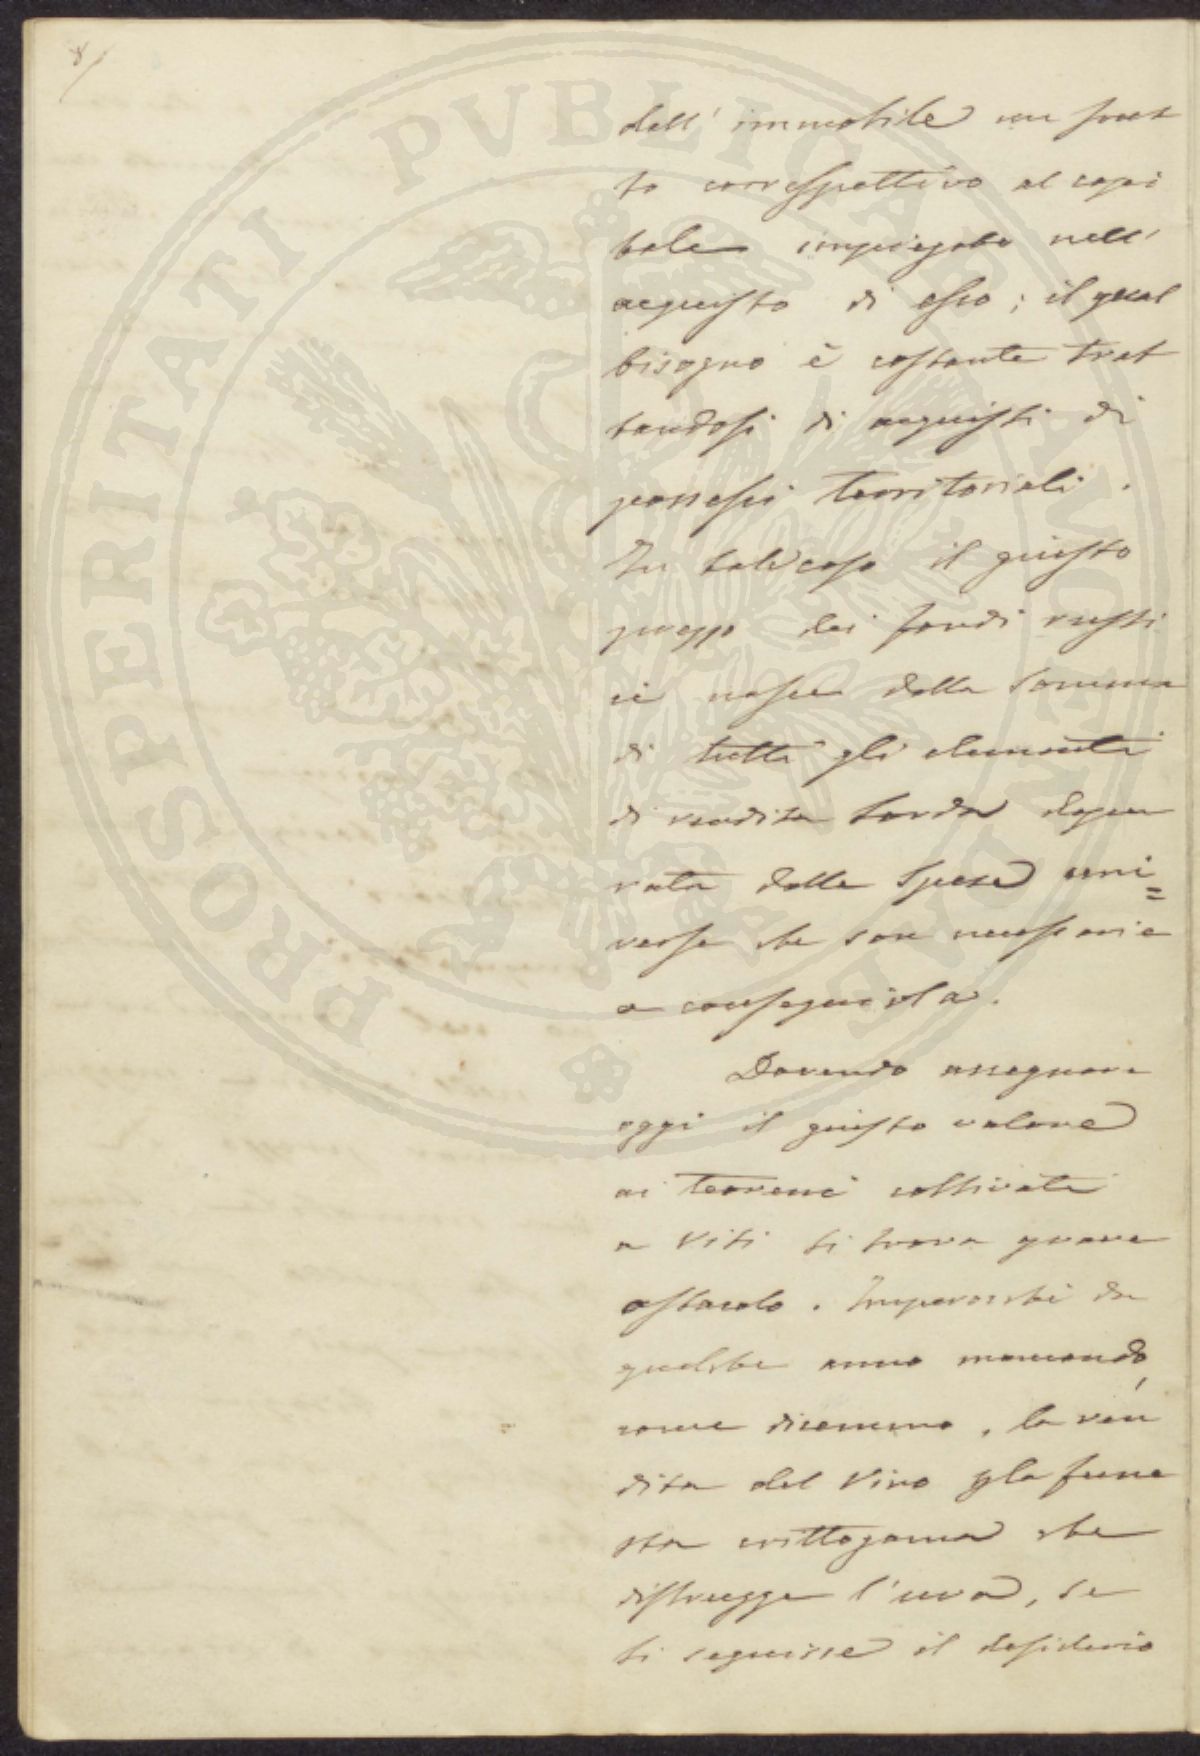 8/
dell' immobile un frut
to correspettivo al capi
tale impiegato nell'
acquisto di esso; il qual
bisogno è costante trat
tandosi di acquisti di
possessi territoriali.
In tale caso il giusto
prezzo dei fondi rusti
ci nasce dalla somma
di tutti gli elementi
di rendita lorda depu
rata dalle spese uni=
verse che son necessarie
a conseguirla.
Dovendo assegnare
oggi il giusto valore
ai terreni coltivati
a viti si trova grave
ostacolo. Imperocchè da
qualche anno mancando,
come dicemmo, la ren
dita del vino p la fune
sta crittogama che
distrugge l'uva, se
si seguisse il desiderio
PROSPERITATI PVBLICAE AVGENDAE